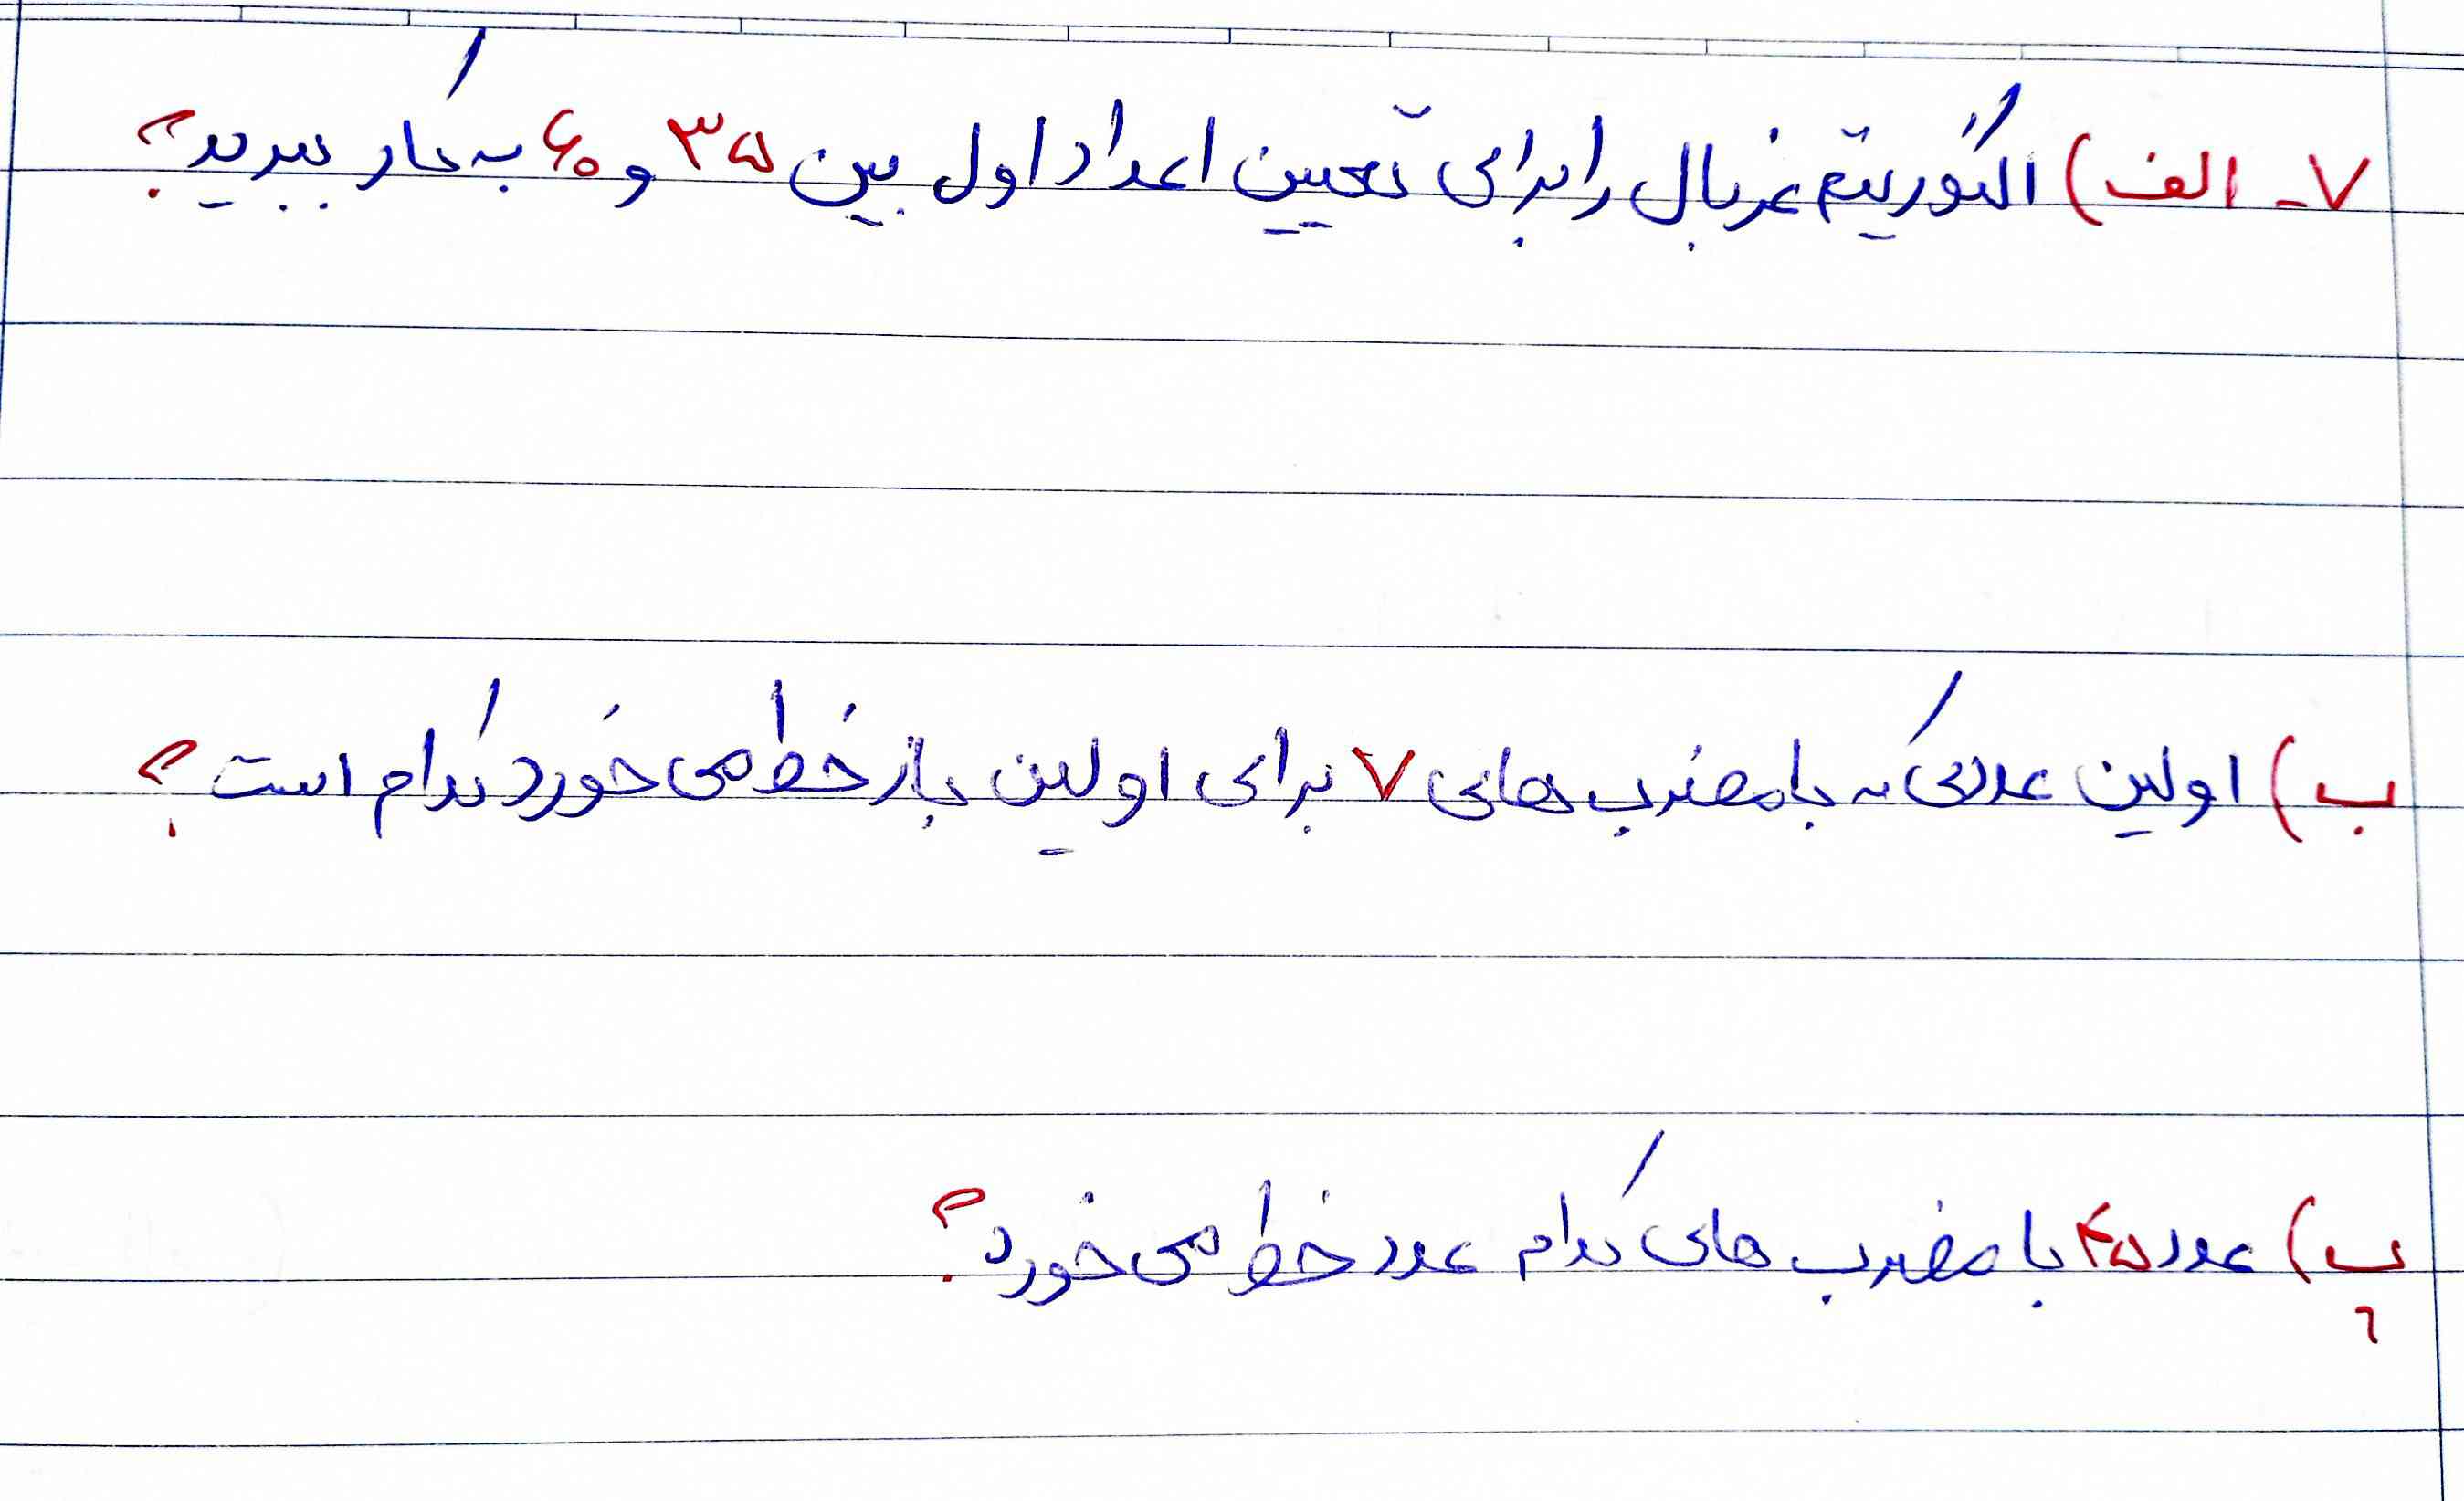 ۷- الف) الگوریتم غربال را برای تعیین اعداد اول بین ۳۵ و ۶۰ به کار ببرید؟
ب) اولین عددی که با مضرب های ۷ برای اولین بار خط می خورد کدام است؟
پ) عدد ۴۵ با مضرب های کدام عدد خط می خورد؟